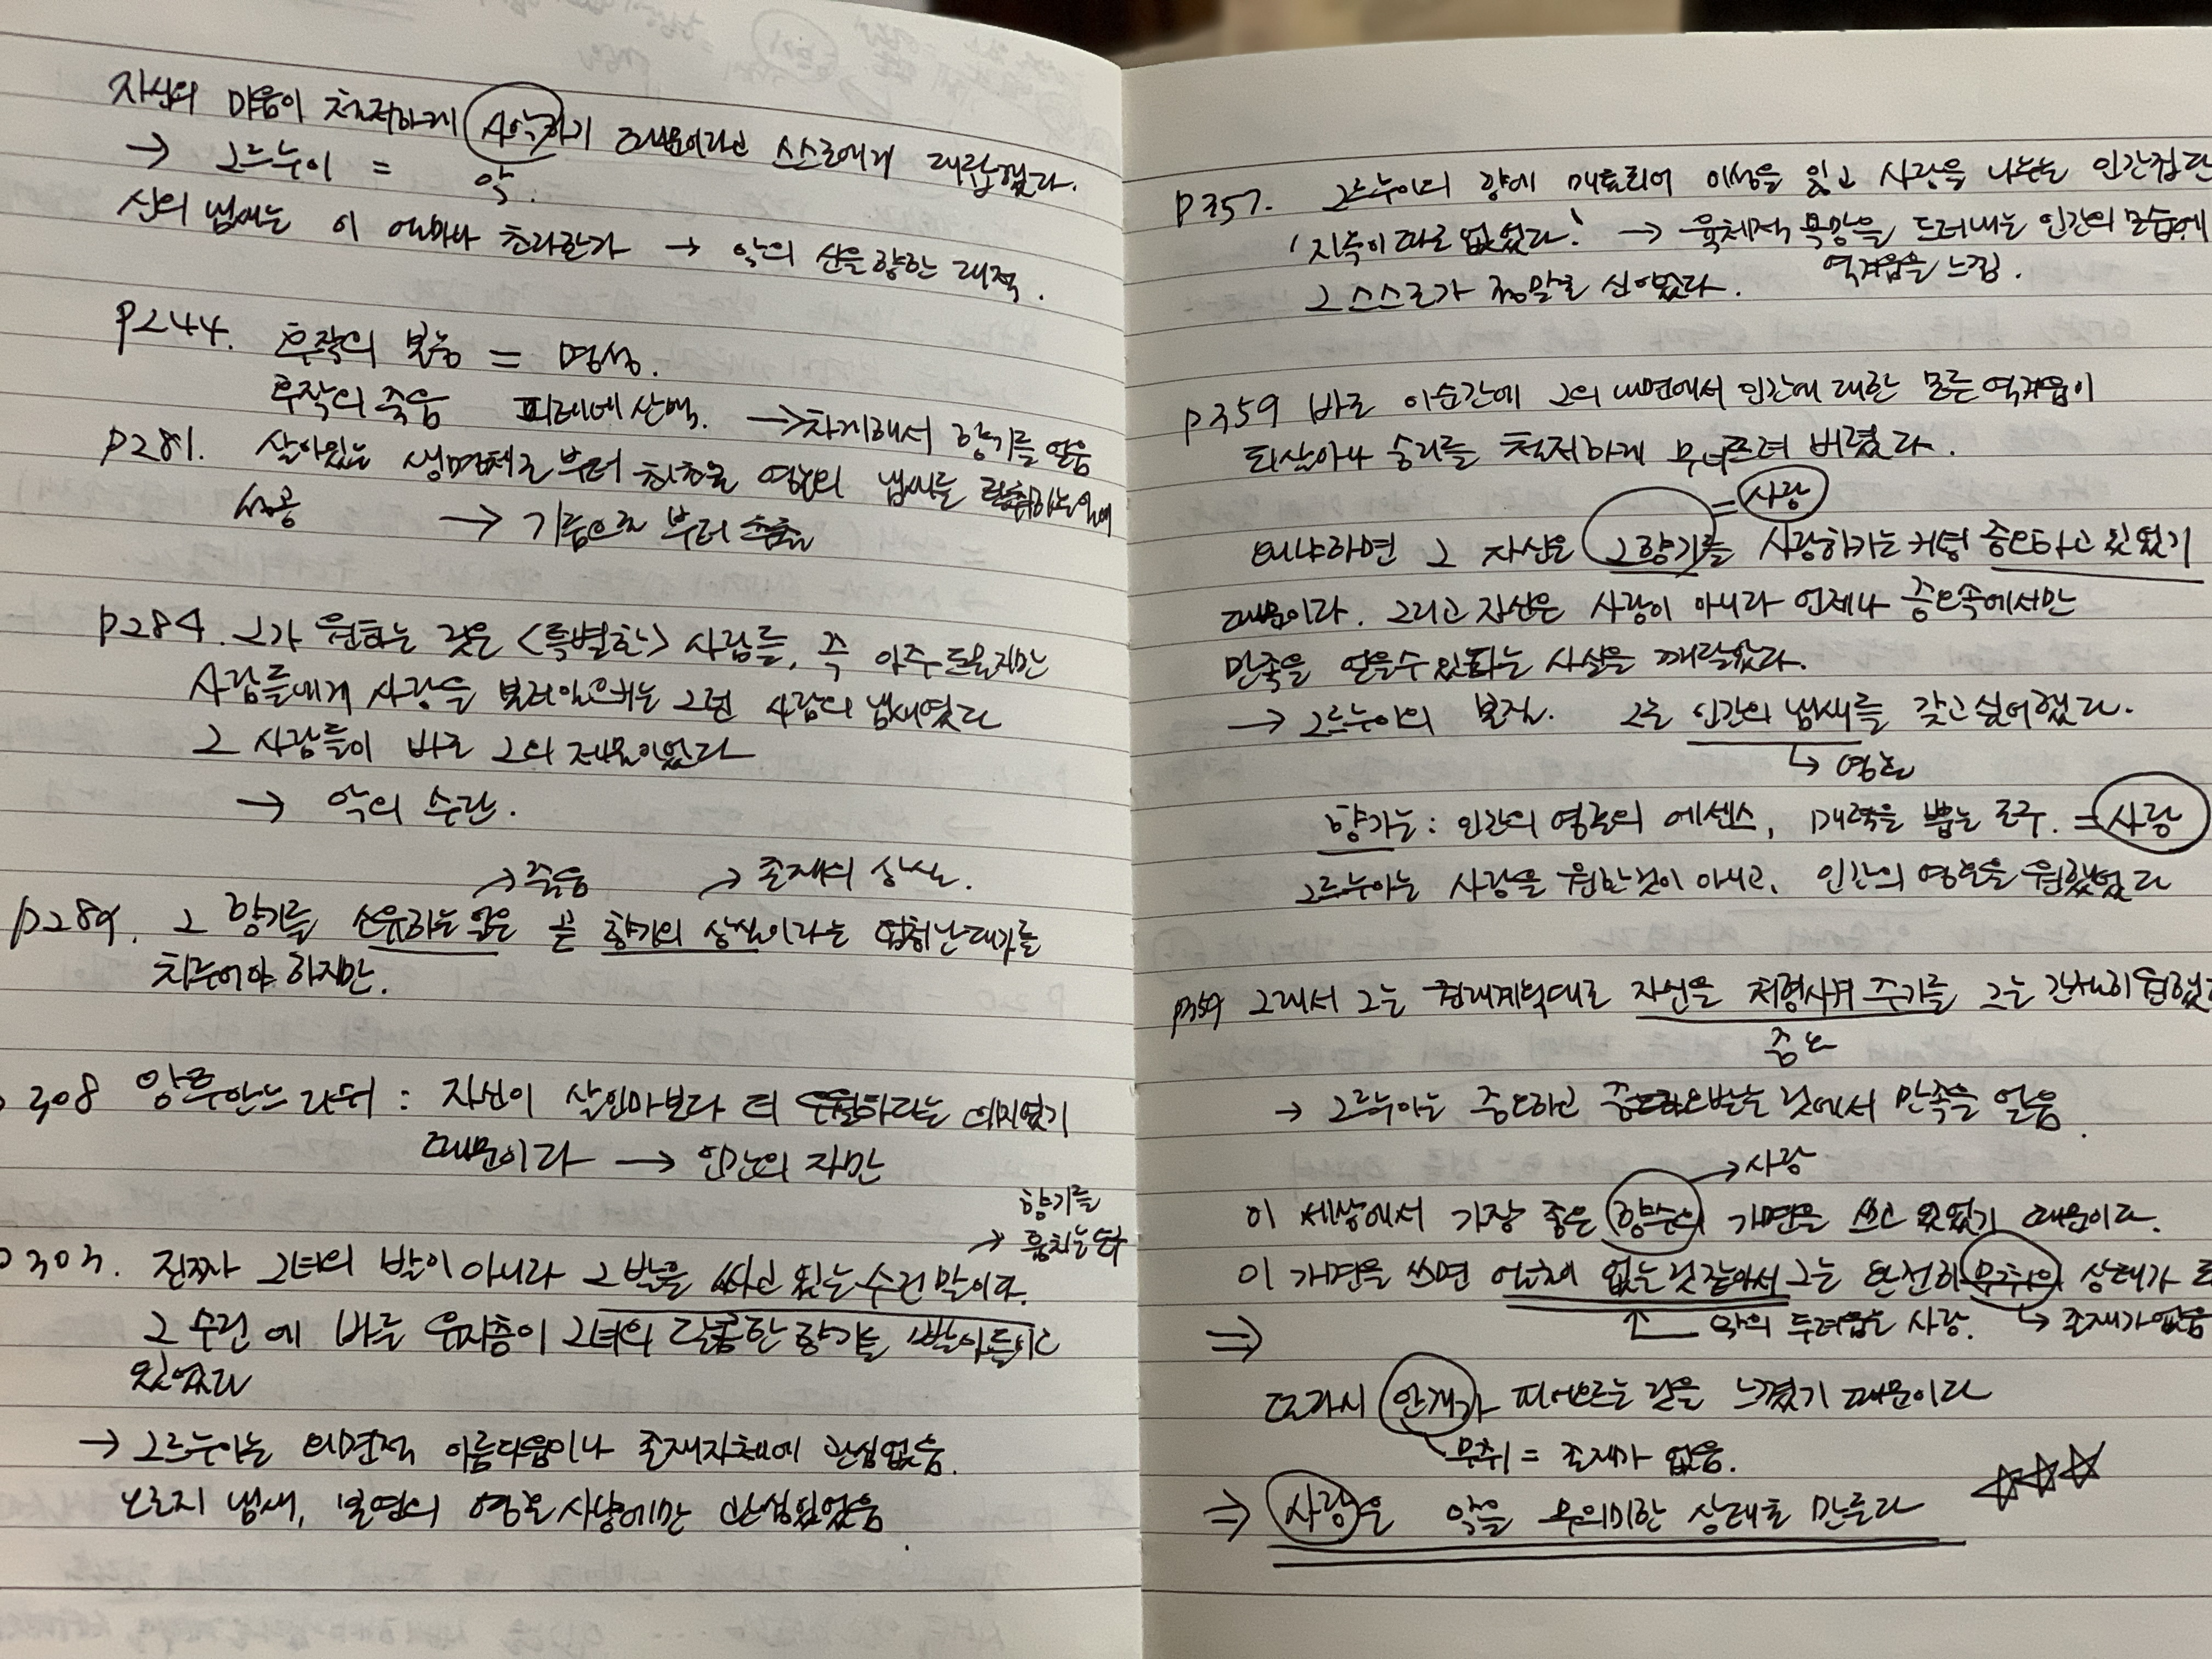 자신의 마음이 철저하게 사악하기 때문이라고 스스로에게 대답했다.
→ 그르누이 = 악.
신의 냄새는 이 얼마나 초라한가 → 악의 신을 향한 대적.
P244. 후작의 본능 = 명성.
후작의 죽음 피레네 산맥.
→
향기를 얻음
P281. 살아있는 생명체로 부터 최초로 영혼의 냄새를 탈취하는일에
성공 → 기름으로 부터
P284. 그가 원하는 것은 <특별한> 사람들, 즉 아주 드물지만
사람들에게 사랑을 불러일으키는 그런 사람의 냄새였다
그 사람들이 바로 그의 제물이었다
→ 악의 수단.
→ 죽음 → 존재의 상실.
P289. 그 향기를 소유하는 것은 곧 향기의 상실이라는 엄청난대가를
치루어야 하지만.
308 앙투안느 리쉬 : 자신이 살인마보다 더
때문이라 → 인간의 자만
향기를
→ 훔치는
303. 진짜 그녀의 발이 아니라 그 발을 싸고 있는 수건 말이다.
그 수건에 바른 유지층이 그녀의 달콤한 향기를 빨아들이고
있었다
→ 그르누이는 외면적 아름다움이나 존재자체에 관심없음.
오로지 냄새, 영혼 사냥에만 관심있었음.
P357. 그르누이의 향에 매료되어 이성을 잃고 사랑을 나누는 인간
'지옥이 따로 없었다.' → 육체적 욕망을 드러내는 인간의 모습에
역겨움을 느낌.
그 스스로가 정말로 신이었다.
P359 바로 이순간에 그의 내면에서 인간에 대한 모든 역겨움이
되살아나 승리를 철저하게 무너뜨려 버렸다.
= 사랑
왜냐하면 그 자신은 그향기를 사랑하기는 커녕 증오하고 있었기
때문이다. 그리고 자신은 사랑이 아니라 언제나 증오속에서만
만족을 얻을수있다는 사실을 깨달았다.
→ 그르누이의 본질. 그는 인간의 냄새를 갖고싶어했다.
↳ 영혼
향기는 : 인간의 영혼의 에센스, 매력을 뿜는 도구. = 사랑
그르누이는 사랑을 원한것이 아니고, 인간의 영혼을 원했었다
P359 그래서 그는 원래계획대로 자신을 처형시켜 주기를 그는 간절히 원했
증오
→ 그르누이는 증오하고 증오받는 것에서 만족을 얻음.
→ 사랑
이 세상에서 가장 좋은 향수의 가면을 쓰고 있었기 때문이다.
이 가면을 쓰면 얼굴이 없는것 같아서 그는 완전히 무취의 상태가
⇒ ↑ 악의 두려움은 사랑. ↳ 존재가없음
또다시 안개가 피어오르는 것을 느꼈기 때문이다
무취 = 존재가 없음.
⇒ 사랑은 악을 무의미한 상태로 만든다